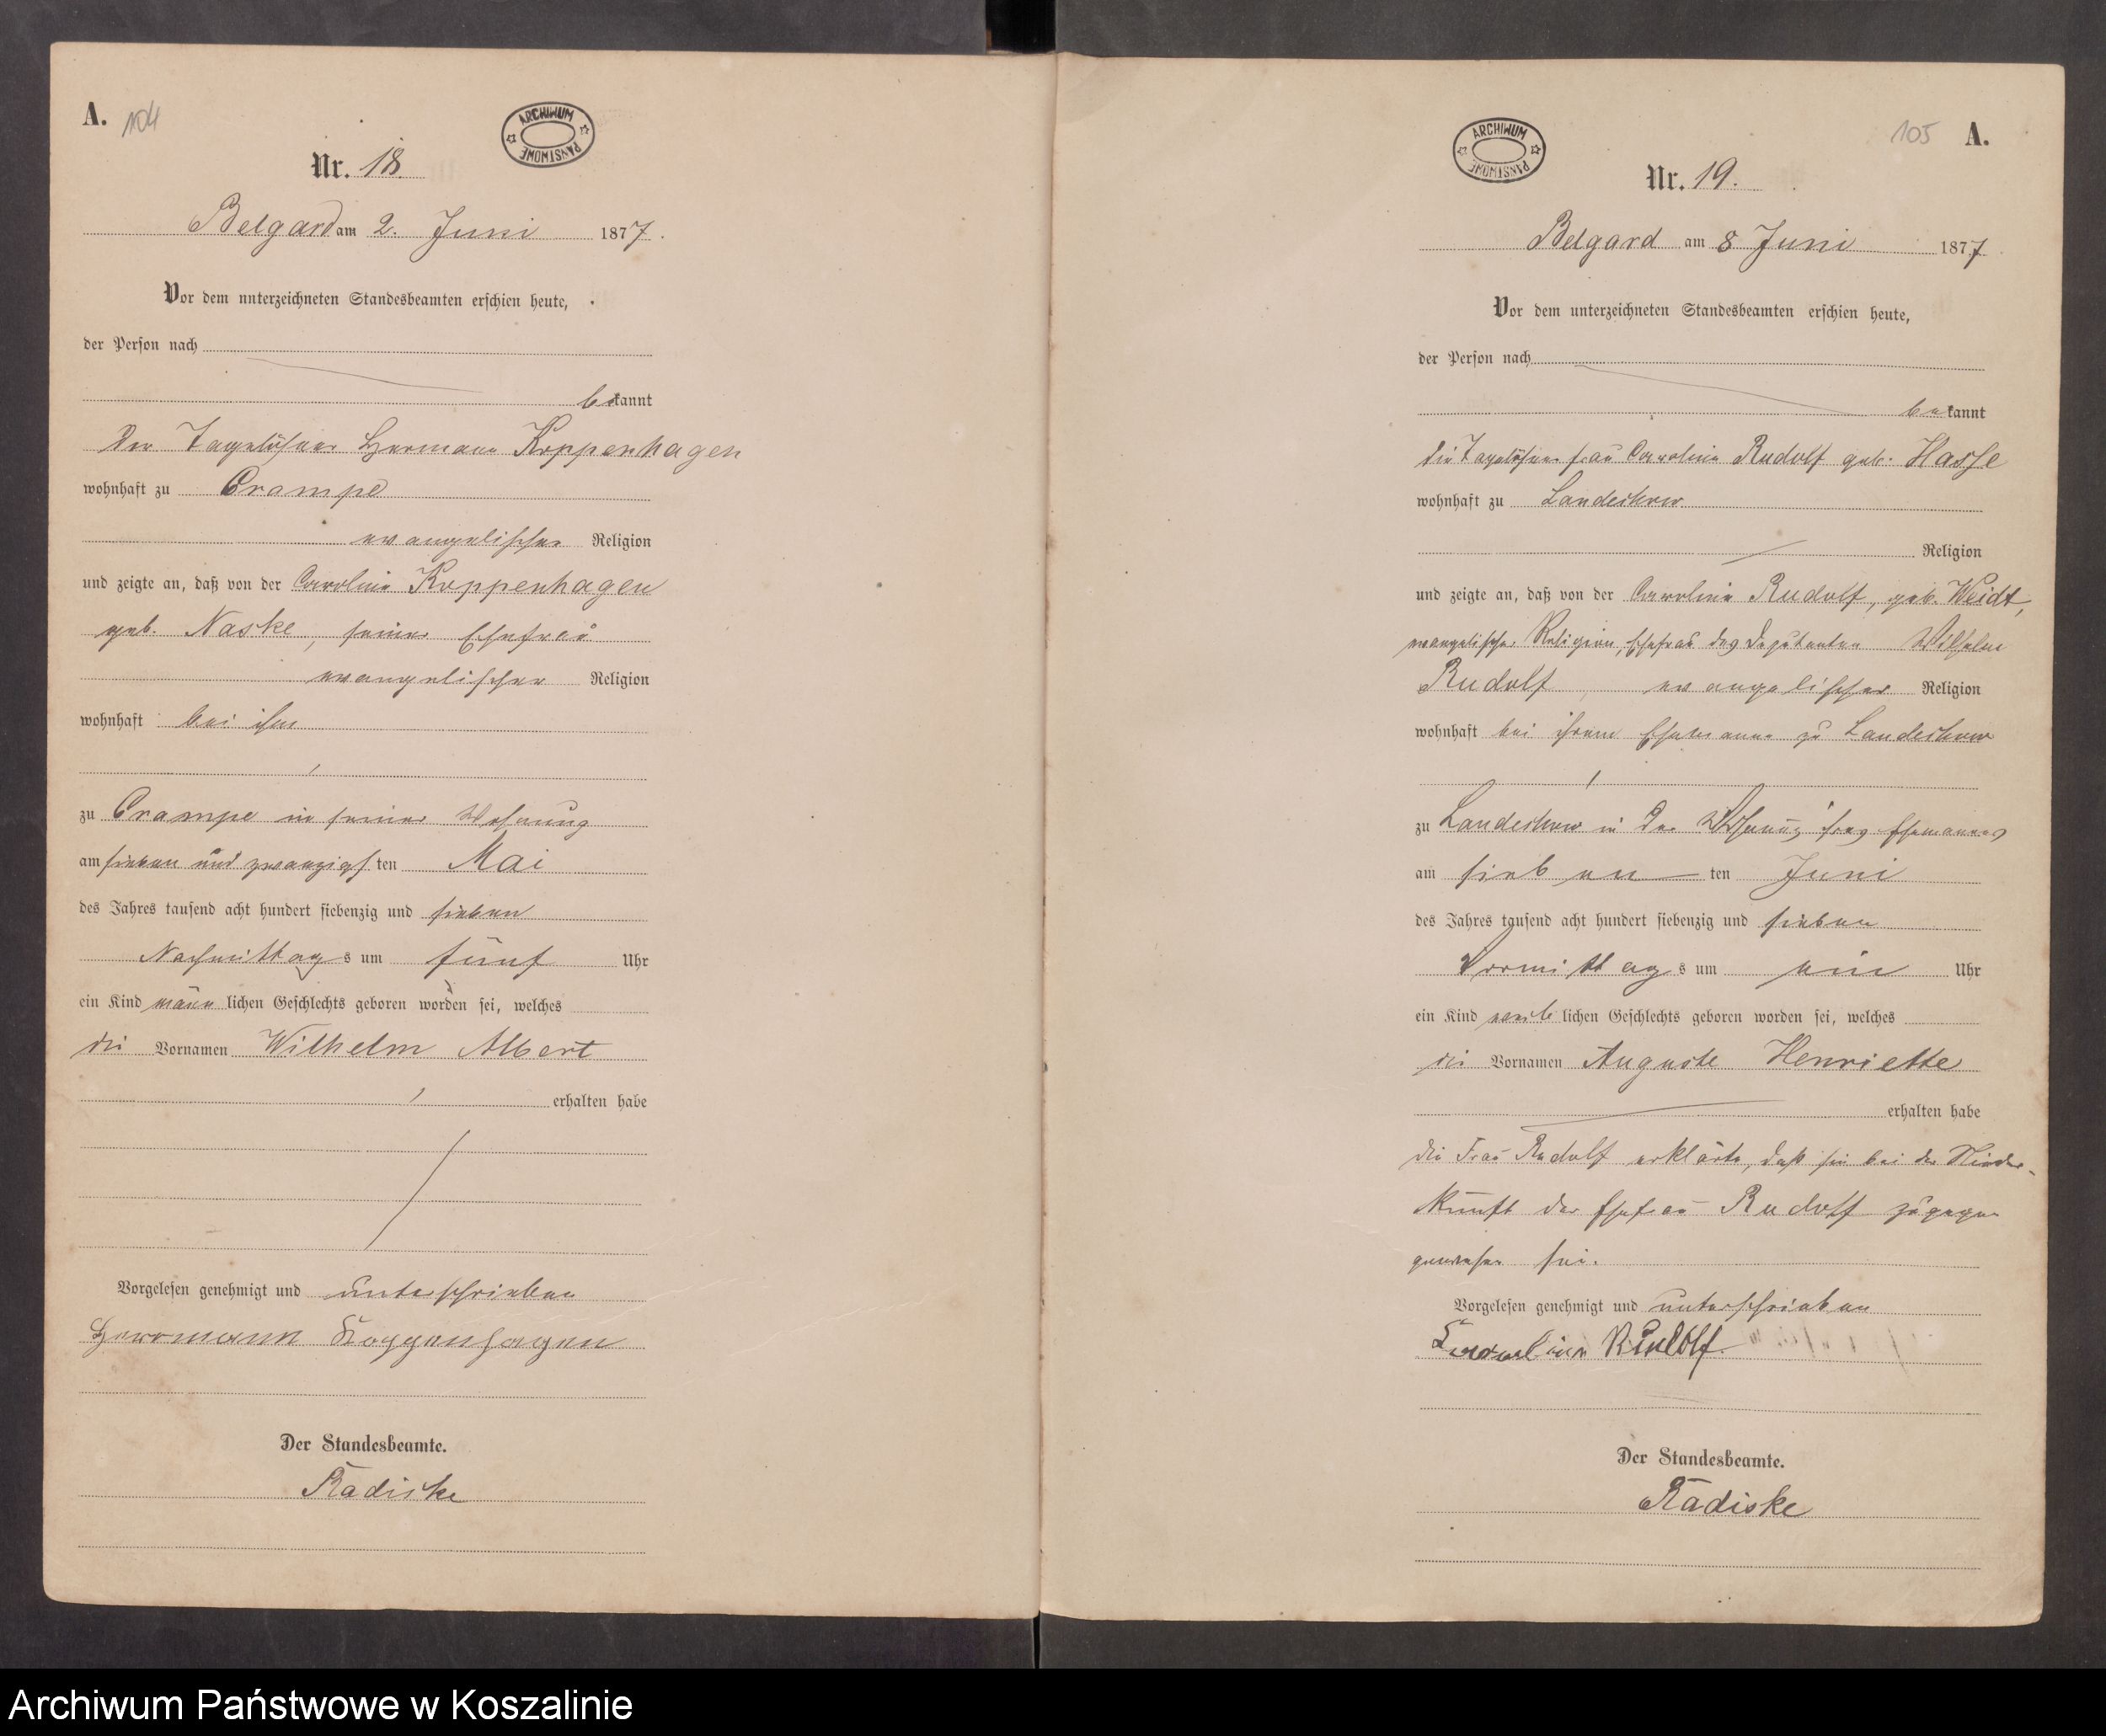 A. 104
ARCHIWUM PAŃSTWOWE
Nr. 18.
Belgard am 2. Juni 1877.
Vor dem unterzeichneten Standesbeamten erschien heute,
der Person nach
bekannt
der Tagelöhner Hermann Koppenhagen
wohnhaft zu Crampe
evangelischer Religion
und zeigte an, daß von der Caroline Koppenhagen
geb. Naske, seiner Ehefrau
evangelischer Religion
wohnhaft bei ihm
zu Crampe in seiner Wohnung
am sieben und zwanzigsten Mai
des Jahres tausend acht hundert siebenzig und sieben
Nachmittags um fünf Uhr
ein Kind männlichen Geschlechts geboren worden sei, welches
die Vornamen Wilhelm Albert
erhalten habe
Vorgelesen genehmigt und unterschrieben
Herrmann Koppenhagen
Der Standesbeamte.
Radiske
105 A.
ARCHIWUM PAŃSTWOWE
Nr. 19.
Belgard am 8 Juni 1877
Vor dem unterzeichneten Standesbeamten erschien heute,
der Person nach
bekannt
die Tagelöhner frau Caroline Rudolf geb. Hasse
wohnhaft zu Landechow
Religion
und zeigte an, daß von der Caroline Rudolf, geb. Weidt,
evangelischer Religion, Ehefrau des Deputanten Wilhelm
Rudolf, evangelischer Religion
wohnhaft bei ihrem Ehemanne zu Landechow
zu Landechow in der Wohnung ihres Ehemannes
am siebenten Juni
des Jahres tausend acht hundert siebenzig und sieben
Vormittags um ein Uhr
ein Kind weiblichen Geschlechts geboren worden sei, welches
die Vornamen Auguste Henriette
erhalten habe
die Frau Rudolf erklärte, daß sie bei der Nieder-
kunft der Ehefrau Rudolf zugegen
gewesen sei.
Vorgelesen genehmigt und unterschrieben
Karoline Rudolf
Der Standesbeamte.
Radiske
Archiwum Państwowe w Koszalinie